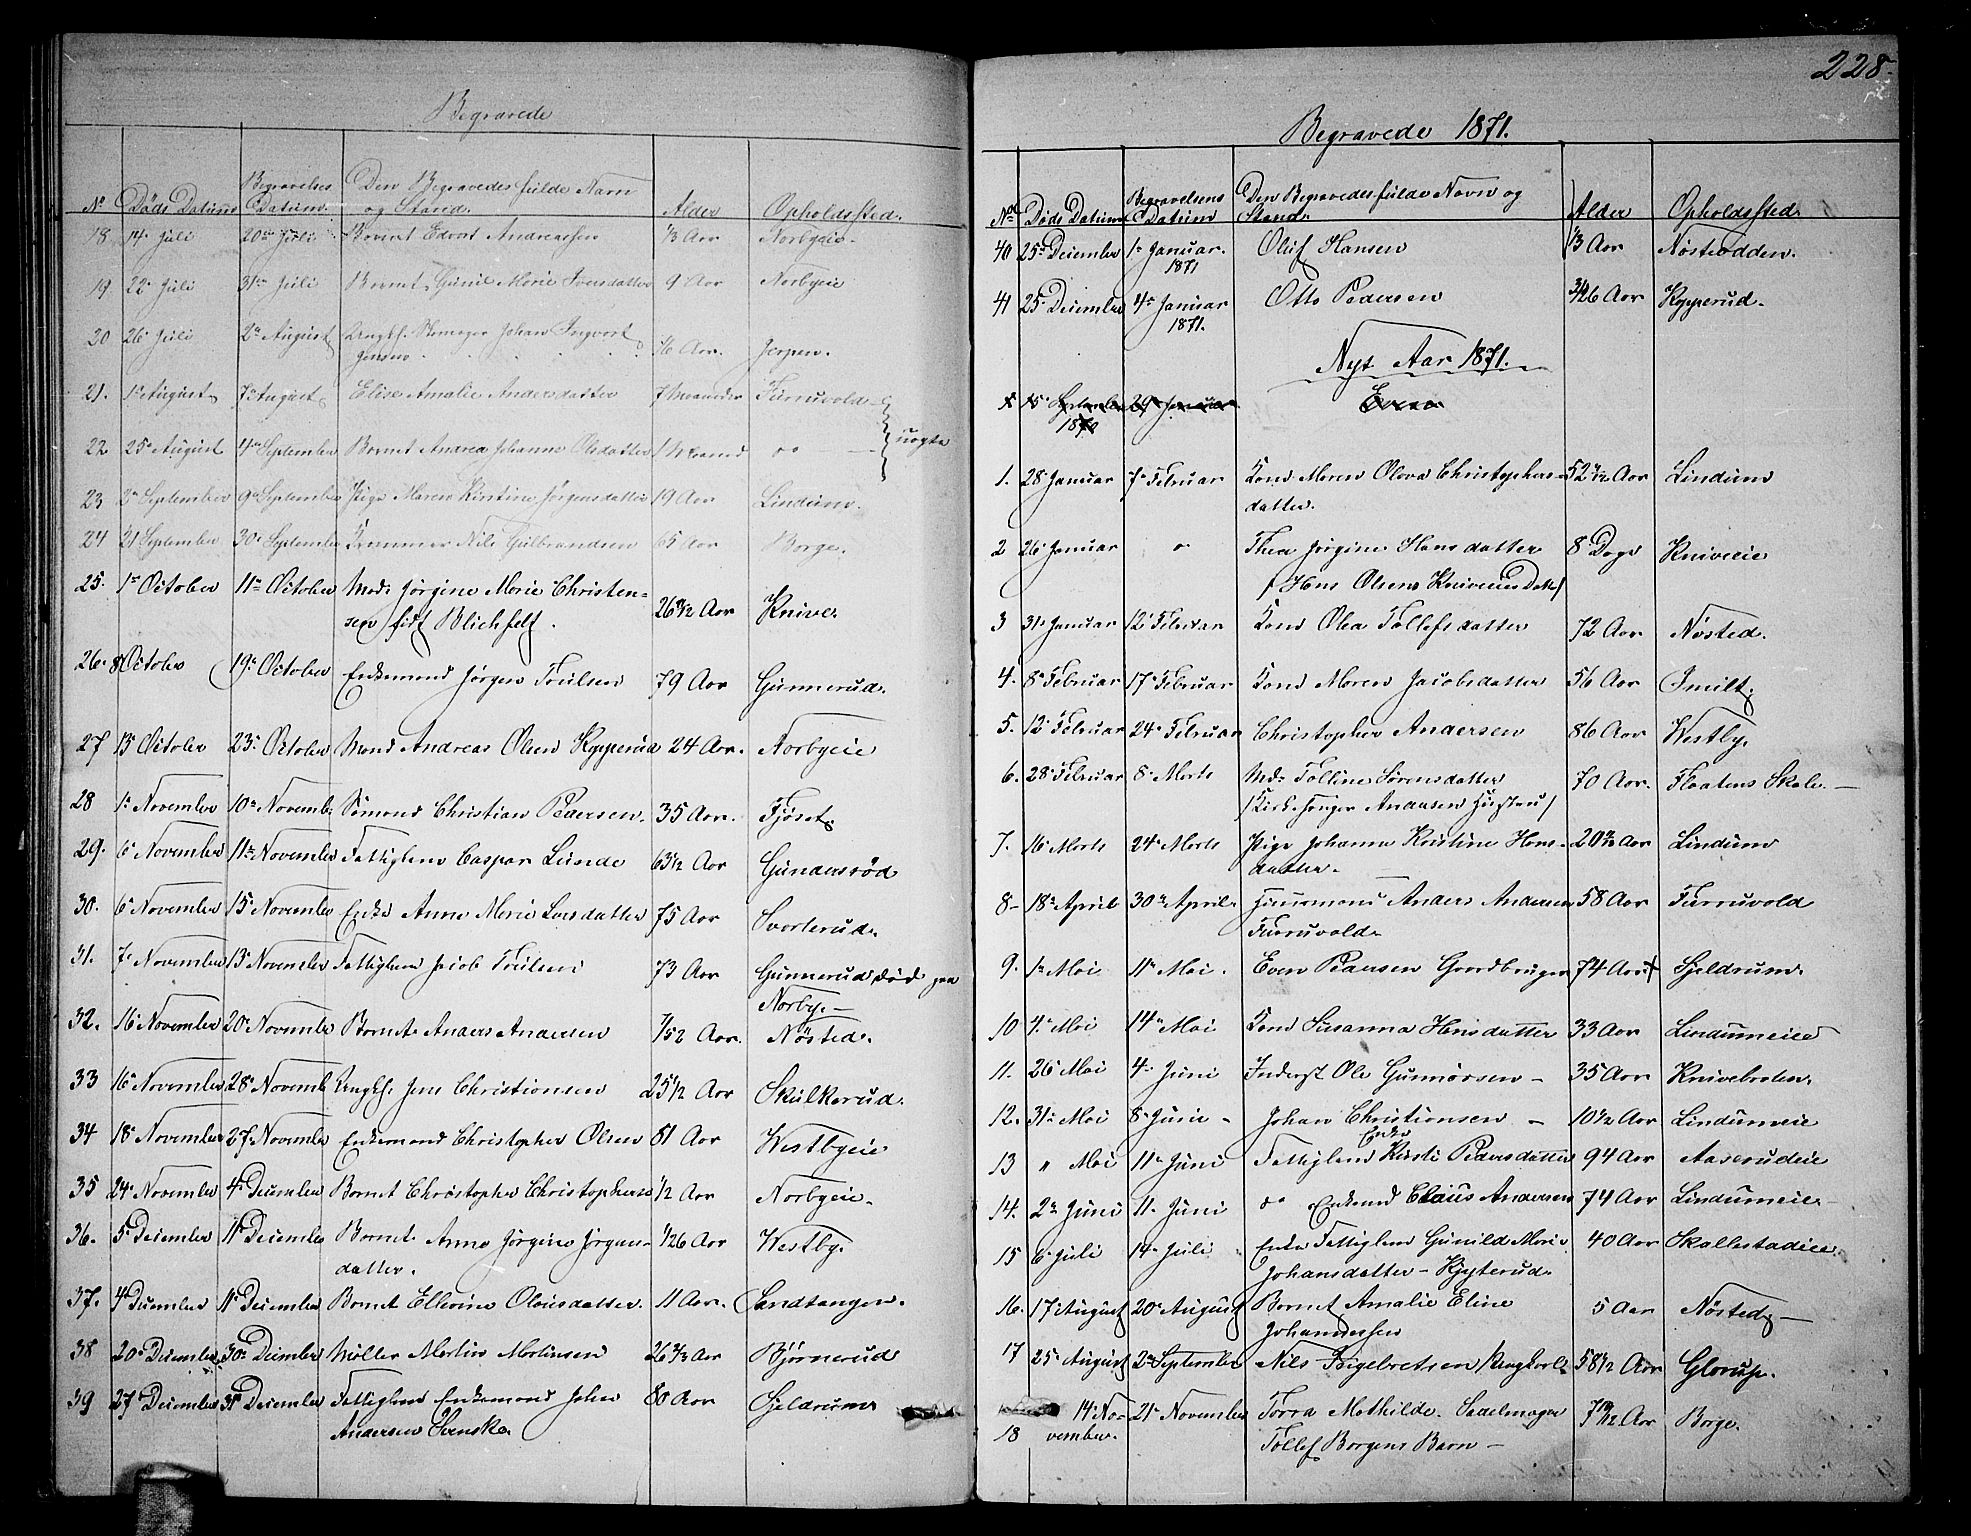 Begravede
No Døds Datum Begravelses Datum Den Begravedes fulde Navn og Stand. Alder Opholdssted.
18 14de Juli 20de Juli Barnet Edvart Andreassen 1/3 Aar Norbyeie
19 22de Juli 31te Juli Barnet Gunil Marie Iversdatter 9 Aar Norbyeie
20 26de Juli 2den August Ungkl. Skomager Johan Ingvart
Jensen 16 Aar. Jerpen.
21. 1ste August 7de August Elise Amalie Andersdatter 7 Maaneder Furruvold
22 25de August 4de September Barnet Andrea Johanne Olsdatter 1 Maaned do uægte
23 2den September 9de September Pige Maren Kirstine Jørgensdatter 19 Aar Lindum.
24 21 September 30te September Kræmmer Nils Gulbrandsen 65 Aar Borge.
25. 1ste October 11te October Mad. Jørgine Marie Christen=
sen født Blichfelt. 26 Aar Knive.
26. 8de October 19de October Enkemand Jørgen Trulsen 79 Aar Gunnerud.
27 13de October 23de October Mand Andreas Olsen Kopperud 24 Aar. Norbyeie
28 1ste November 10de November Sømand Christian Pedersen. 35 Aar. Fjøset
29. 6te November 11te November Fattiglem Caspar Lunde 63 1/2 Aar Gundersrød
30. 6te November 15de November Enke Anne Marie Larsdatter 75 Aar Svarterud.
31. 7de November 13de November Fattiglem Jacob Trulsen 73 Aar Gunnerud død paa
Norby.
32. 16de November 20de November Barnet Anders Andersen 7/52 Aar. Nøsted.
33 16de November 28de November Ungkl. Jens Christiansen 25 1/2 Aar Skulkerud.
34 18de November 27de November Enkemand Christopher Olsen 81 Aar Westbyeie
35 24de November 4de December Barnet Christopher Christophersen 1/2 Aar Norbyeie.
36. 5te December 11te December Barnet Anne Jørgine Jørgens=
datter. 1/26 Aar Westby.
37. 4de December 11te December Barnet Ellevine Olausdatter. 11 Aar. Sandtangen.
38 20de December 30te December Møller Martin Martinsen 26 3/4 Aar Bjørnerud
39 27de December 31te December Fattiglem Enkemand Johan
Andersen Svenske. 80 Aar Sjeldrum
228.
Begravede 1871.
No Døds Datum Begravelsens Datum Den Begravedes fulde Navn og Stand. Alder Opholdssted.
40 25de December 1ste Januar 1871 Oluf Hansen 1/3 Aar Nøsteodden.
41 25de December 4de Januar 1871. Otto Pedersen 3/26 Aar Kopperud.
Nyt Aar 1871.
1 15de September 1870 29de Januar Even
1. 28 Januar 7de Februar Kone Maren Olava Christophers=
datter. 52 Aar Lindum
2 26de Januar do Thea Jørgine Hansdatter 8 Dage Kniveeie
/ Hans Olsens Kniveeies Datter /
3 31te Januar 12te Februar Kone Olea Tollefsdatter 72 Aar Nøsted.
4. 8de Februar 17de Februar Kone Maren Jacobsdatter 56 Aar Smilt
5. 12te Februar 24de Februar Christopher Andersen 86 Aar Westby.
6. 28de Februar 8de Marts Mad. Tolline Sørensdatter 70 Aar. Flaatens Skole.
/ Kirkesanger Andersens Hustru /
7. 16de Marts 24de Marts Pige Johanne Kristine Hans=
datter. 20 Aar Lindum
8 18de April 30te April Huusmand Anders Andersen 58 Aar Furruvold
Furruvold.
9. 1ste Mai 11te Mai. Even Pedersen Gaardbruger 74 Aar Sjeldrum.
10 4de Mai 14de Mai Kone Susanna Hansdatter 33 Aar Lindumeie
11. 26de Mai 4de Juni Inderst Ole Gunnersen 35 Aar Knivebroten.
12. 31te Mai 8de Juni Johan Christiansen 10 1/2 Aar Lindumeie
13 " Mai 11te Juni Fattiglem Enke Kirsti Pedersdatter 94 Aar Aaserudeie
14. 2den Juni 11te Juni do Enkemand Claus Andersen 74 Aar Lindumeie
15 6te Juli 14de Juli Enke Fattiglem Gunild Marie 40 Aar Skallestadeie.
Johansdatter Kjyterud.
16. 17 August 20de August Barnet Amalie Eline
Johannessen 5 Aar Nøsted
17 25de August 2den September Nils Ingebretsen Ungkarl 58 1/2 Aar Glorup.
18 14de November. 21de November Torra Mathilde. Sadelmager
Tollef Borgens Barn 7 Aar Borge.